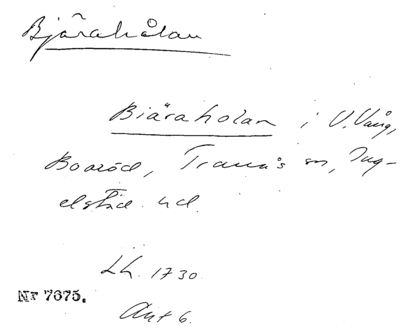 Bjärahålan
Biäraholan i V. Vång,
Boaröd, Tranås sn, Ing-
elstad hd.
Lh. 1730
Nr 7675.
Akt 6.